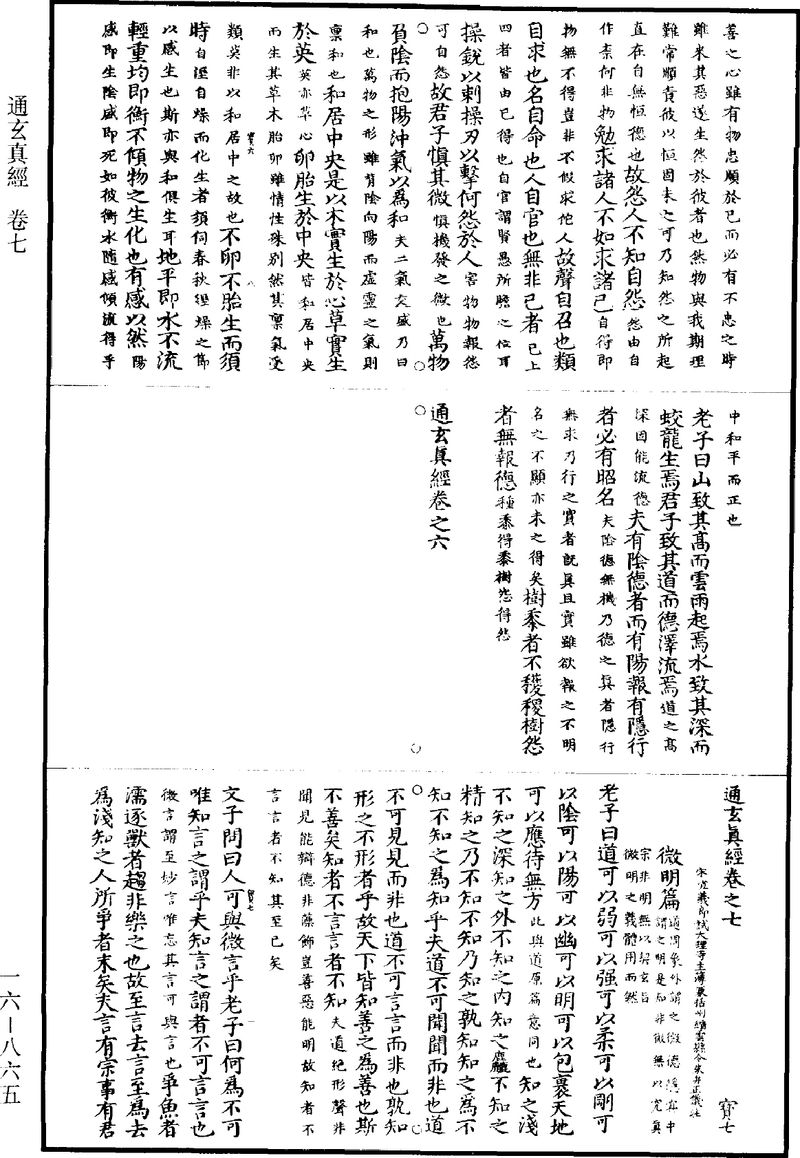 通玄真經 卷七
善之心雖有物忠順於已而必有不忠之時
雖來其惡遂生然於彼者也然物與我期理
難常順責彼以恒因未之可乃知怨之所起
直在自無恒德也故怨人不知自怨怨由自
作柰何非物勉求諸人不如求諸己自得即
物無不得豈非不假求他人故聲自召也類
自求也名自命也人自官也無非己者已上
四者皆由已得也自官謂賢愚所膺之位耳
操銳以刺操刃以擊何怨於人害物物報怨
可自怨故君子慎其微慎機發之微也萬物
負陰而抱陽沖氣以為和夫二氣交感乃曰
和也萬物之形雖背陰向陽而虛靈之氣則
稟和也和居中央是以木實生於心草實生
於英英亦草心卵胎生於中央皆和居中央
而生其草木胎卵雖情性殊別然其稟氣受
類莫非以和居中之故也不卵不胎生而須
時自溼自燥而化生者須伺春秋溼燥之節
以感生也斯亦與和俱生耳地平即水不流
輕重均即衡不傾物之生化也有感以然陽
感即生陰感即死如彼衡水隨感傾流得乎
中和平而正也
老子曰山致其高而雲雨起焉水致其深而
蛟龍生焉君子致其道而德澤流焉道之高
深因能流德夫有陰德者而有陽報有隱行
者必有昭名夫陰德無機乃德之真者隱行
無求乃行之實者既真且實雖欲報之不明
名之不顯亦未之得矣樹黍者不穫稷樹怨
者無報德種黍得黍樹怨得怨
通玄真經卷之六
通玄真經卷之七
寶七
微明篇
老子曰道可以弱可以强可以柔可以剛可
以陰可以陽可以幽可以明可以包裹天地
可以應待無方此與道原篇意同也知之淺
不知之深知之外不知之內知之麤不知之
精知之乃不知不知乃知之孰知知之為不
知不知之為知乎夫道不可聞聞而非也道
不可見見而非也道不可言言而非也孰知
形之不形者乎故天下皆知善之為善也斯
不善矣知者不言言者不知夫道絕形聲非
聞見能辯德非藻飾豈善惡能明故知者不
言言者不知其至已矣
文子問曰人可與微言乎老子曰何為不可
唯知言之謂乎夫知言之謂者不可言言也
微言謂至妙言唯忘其言可與言也爭魚者
濡逐獸者趨非樂之也故至言去言至為去
為淺知之人所爭者末矣夫言有宗事有君
一六—八六五